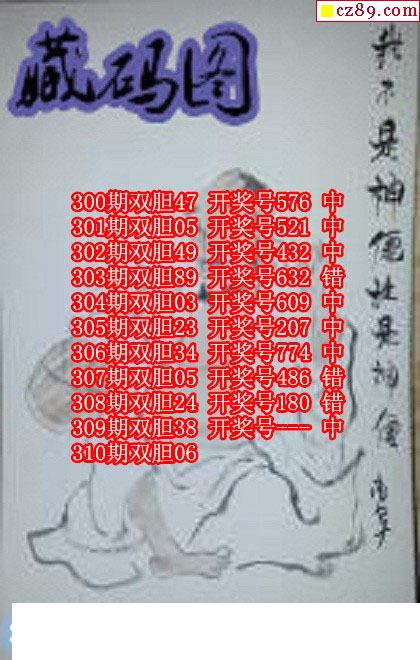 cz89.com
藏码图
300期双胆47 开奖号576 中
301期双胆05 开奖号521 中
302期双胆49 开奖号432 中
303期双胆89 开奖号632 错
304期双胆03 开奖号609 中
305期双胆23 开奖号207 中
306期双胆34 开奖号774 中
307期双胆05 开奖号486 错
308期双胆24 开奖号180 错
309期双胆38 开奖号--- 中
310期双胆06
我不是神但比是神僊